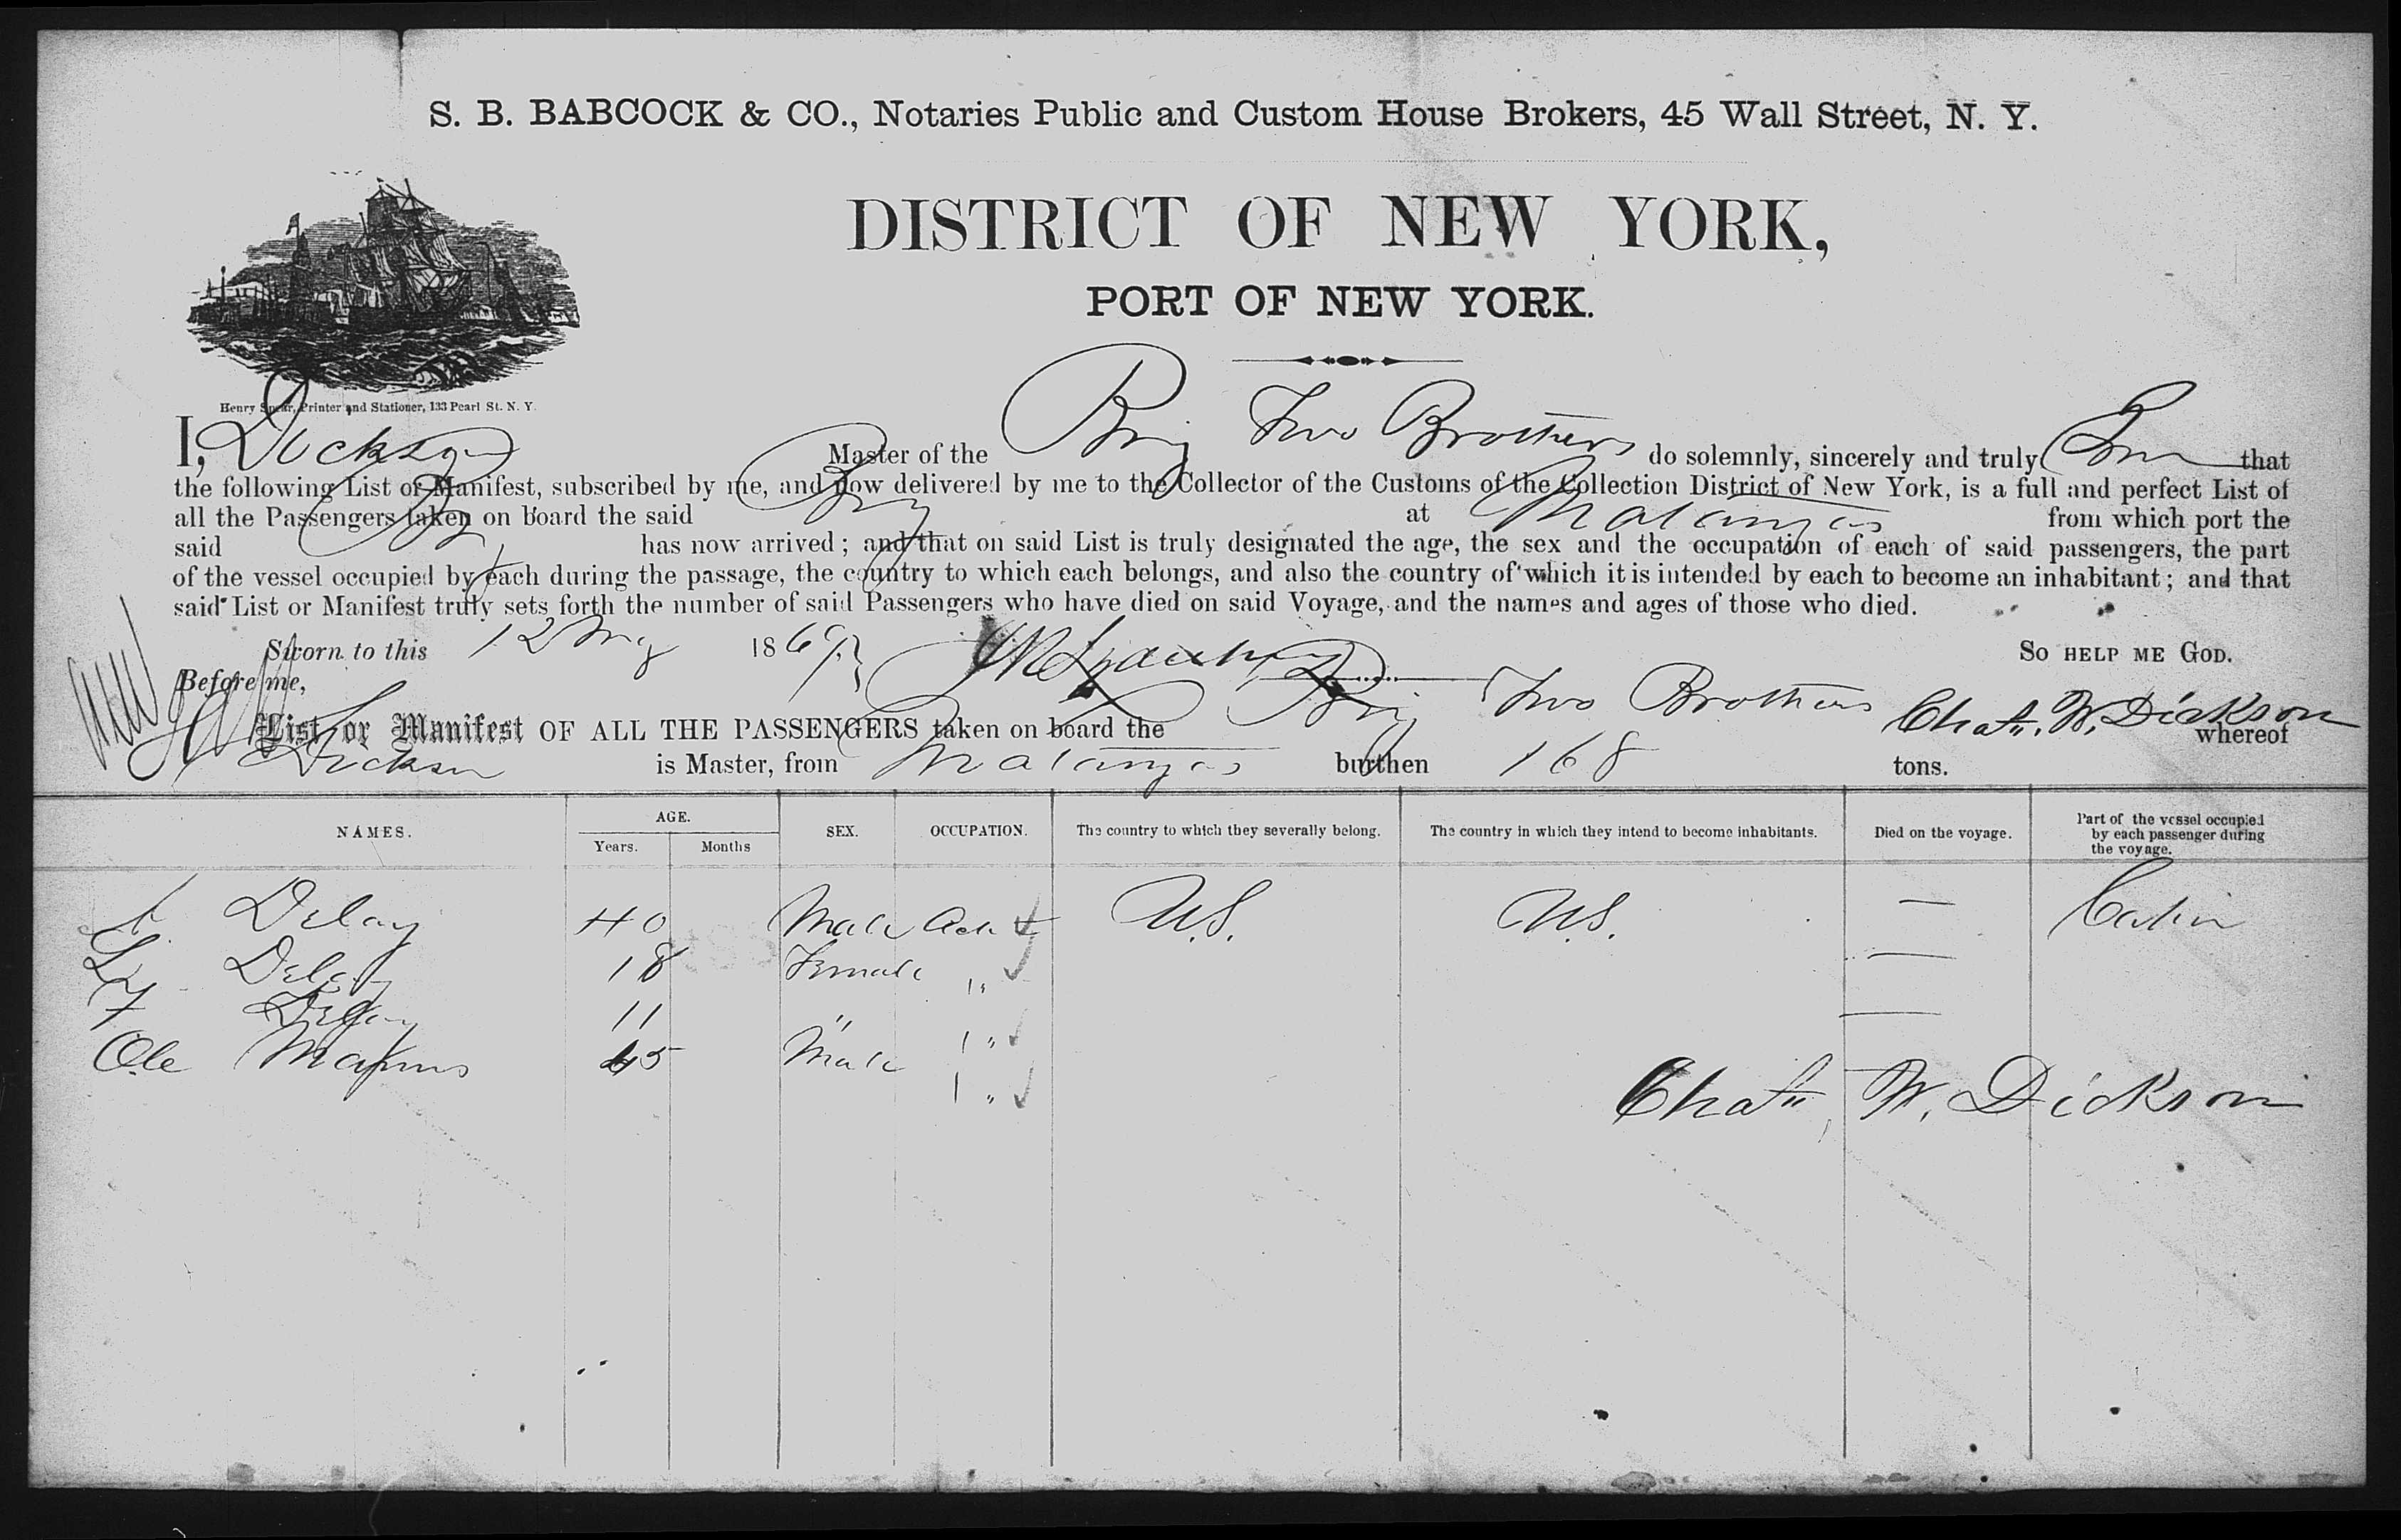 S. B. BABCOCK & CO., Notaries Public and Custom House Brokers, 45 Wall Street, N. Y.
DISTRICT OF NEW YORK,
PORT OF NEW YORK.
Henry Spear, Printer and Stationer, 133 Pearl St. N. Y.
I, Dickson Master of the Brig Two Brothers do solemnly, sincerely and truly that
the following List or Manifest, subscribed by me, and now delivered by me to the Collector of the Customs of the Collection District of New York, is a full and perfect List of
all the Passengers taken on board the said Brig at Matanzas from which port the
said Brig has now arrived; and that on said List is truly designated the age, the sex and the occupation of each of said passengers, the part
of the vessel occupied by each during the passage, the country to which each belongs, and also the country of which it is intended by each to become an inhabitant; and that
said List or Manifest truly sets forth the number of said Passengers who have died on said Voyage, and the names and ages of those who died.
Sworn to this 12 May 1869 SO HELP ME GOD.
Before me,
Chas. W. Dickson
List or Manifest OF ALL THE PASSENGERS taken on board the Brig Two Brothers whereof
Dickson is Master, from Matanzas burthen 168 tons.
NAMES. AGE. Years. Months SEX. OCCUPATION. The country to which they severally belong. The country in which they intend to become inhabitants. Died on the voyage. Part of the vessel occupied by each passenger during the voyage.
Delay 40 Male U.S. U.S. — Cabin
Delay 18 Female " —
F Delay 11 " " —
Ole Magnus 45 Male "
Chas. W. Dickson